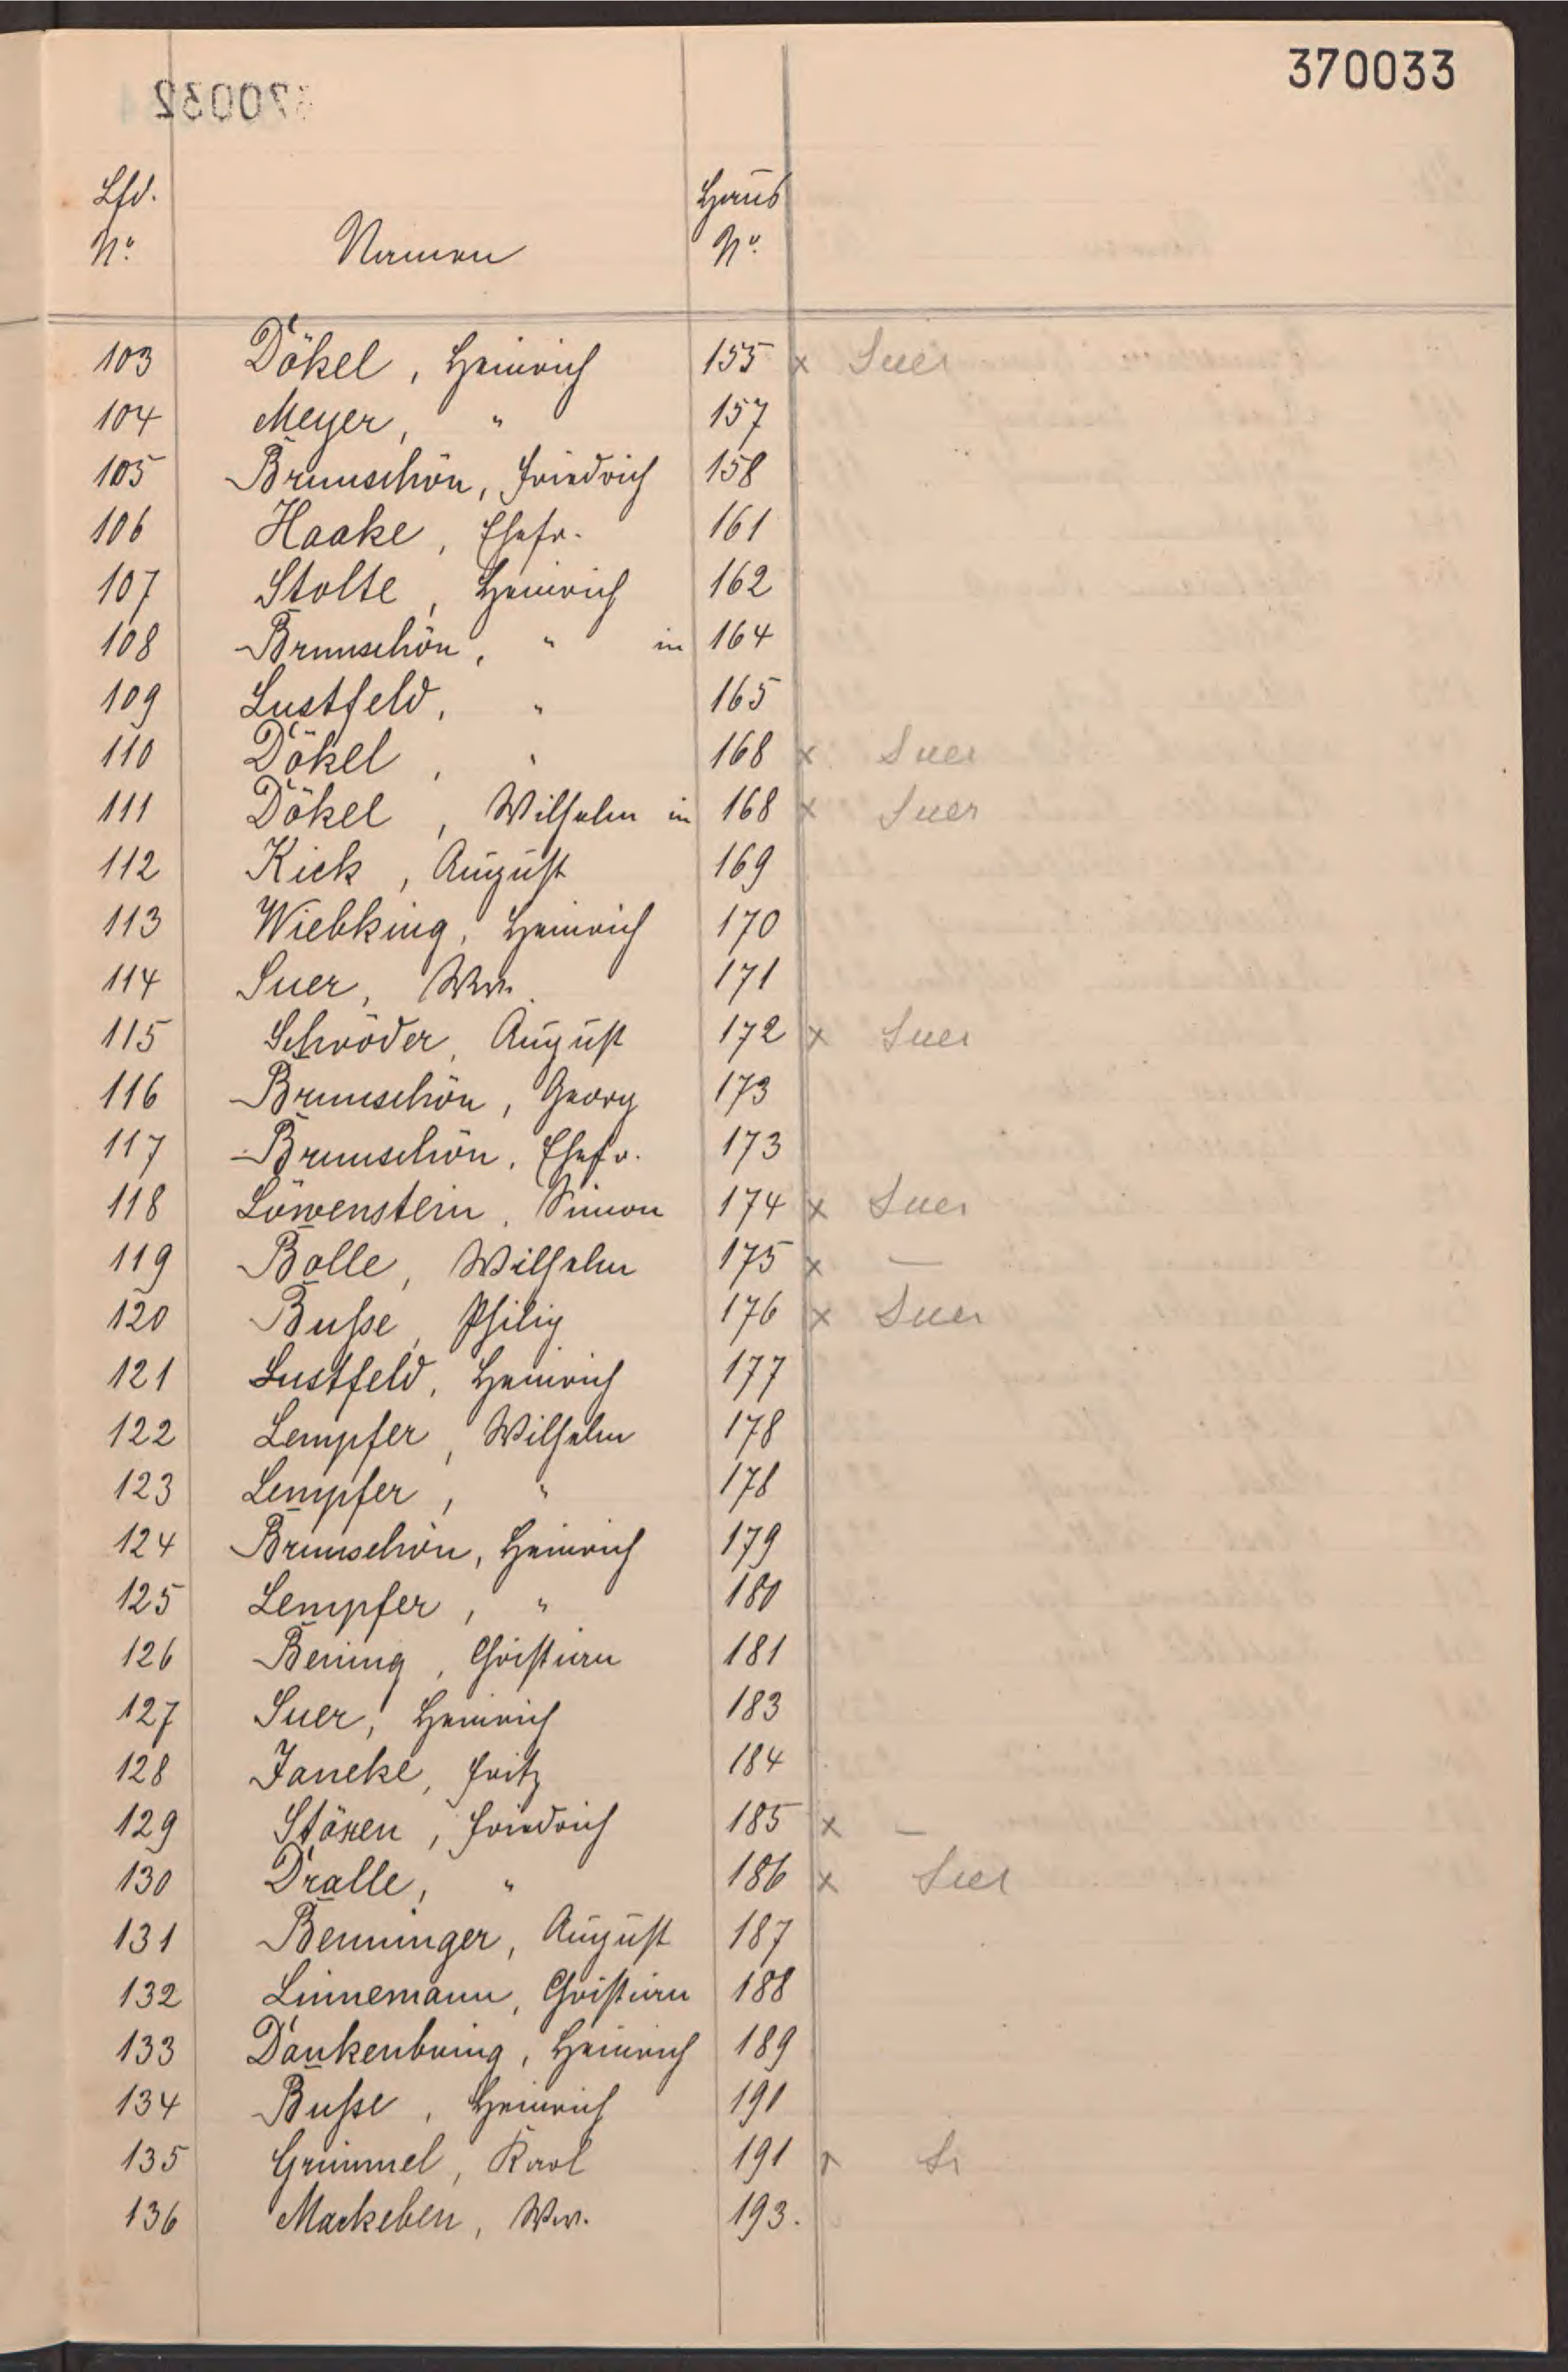 370033
370032
Lfd. Haus
No. Namen No.
103 Dökel, Heinrich 155 x Suer
104 Meyer, " 157
105 Brunschön, Friedrich 158
106 Haake, Ehefr. 161
107 Stolte, Heinrich 162
108 Brunschön, " in 164
109 Lustfeld, " 165
110 Dökel, " 168 x Suer
111 Dökel, Wilhelm in 168 x Suer
112 Kick, August 169
113 Wiebking, Heinrich 170
114 Suer, Ww. 171
115 Schröder, August 172 x Suer
116 Brunschön, Georg 173
117 Brunschön, Ehefr. 173
118 Löwenstein, Simon 174 x Suer
119 Bolle, Wilhelm 175 x —
120 Buße, Philip 176 x Suer
121 Lustfeld, Heinrich 177
122 Lempfer, Wilhelm 178
123 Lempfer, " 178
124 Brunschön, Heinrich 179
125 Lempfer, " 180
126 Bening, Christian 181
127 Suer, Heinrich 183
128 Janeke, Fritz 184
129 Stöxen, Friedrich 185 x —
130 Dralle, " 186 x Suer
131 Benninger, August 187
132 Linnemann, Christian 188
133 Dankenbring, Heinrich 189
134 Buße, Heinrich 190
135 Grimmel, Karl 191
136 Markeben, Ww. 193.